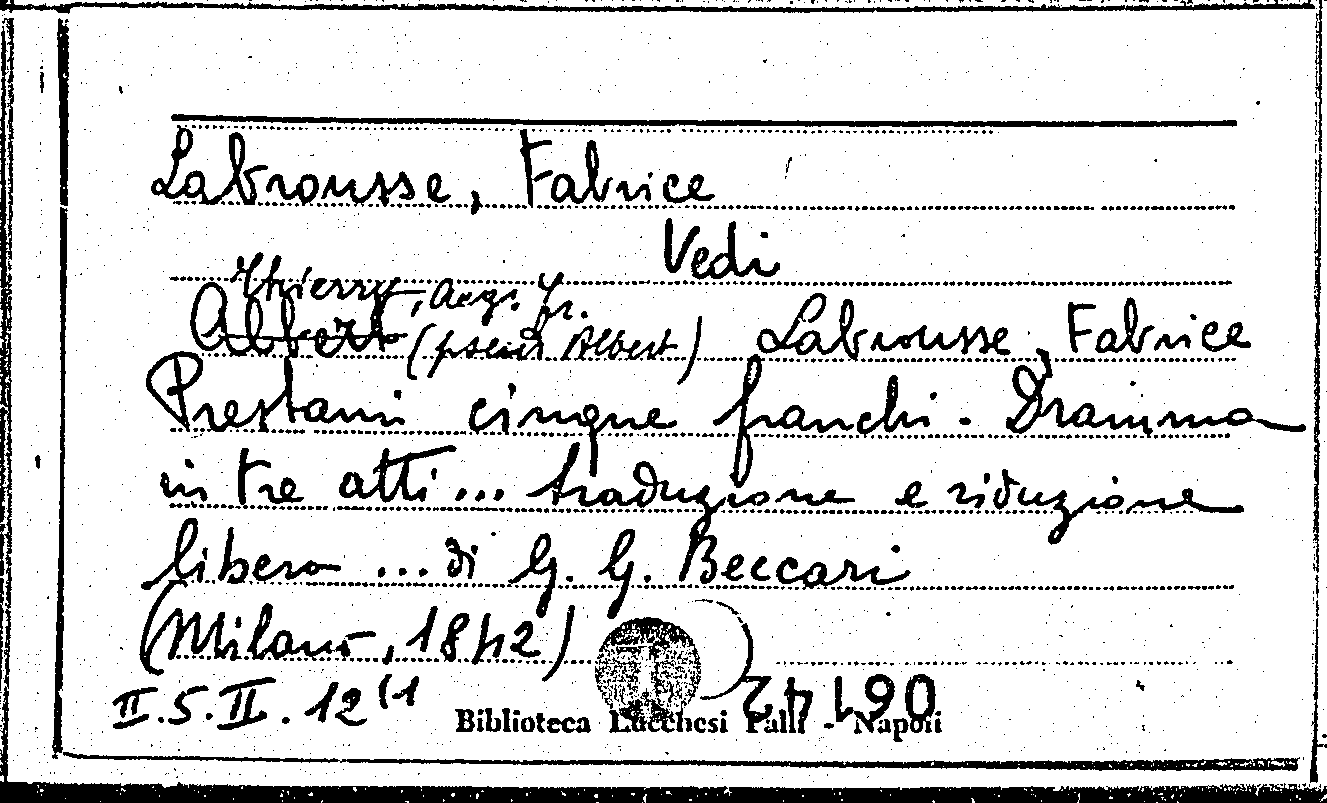 Labrousse, Fabrice
Vedi
Thierry, Aug. Fr.
Albert (pseud Albert) Labrousse, Fabrice
Prestami cinque franchi. Dramma
in tre atti... traduzione e riduzione
libera ... di G. G. Beccari
(Milano, 1842)
II.5.II.12(1
06142
Biblioteca Lucchesi Palli - Napoli